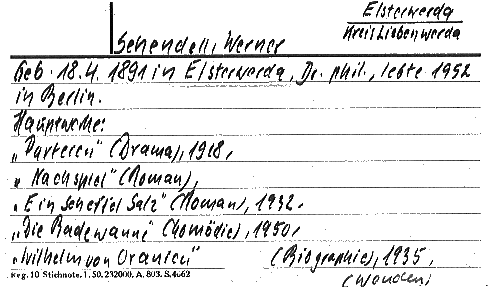 Elsterwerda
Kreis Liebenwerda
Schendell, Werner
Geb. 18.4. 1891 in Elsterwerda, Dr. phil., lebte 1952
in Berlin.
Hauptwerke:
„Parteien" (Drama), 1918,
„Nachspiel" (Roman),
„Ein Scheffel Salz" (Roman), 1932.
„Die Badewanne" (Komödie), 1950,
„Wilhelm von Oranien" (Biographie), 1935,
Reg. 10 Stichnote. 1. 50. 232000, A. 803. S. 4662